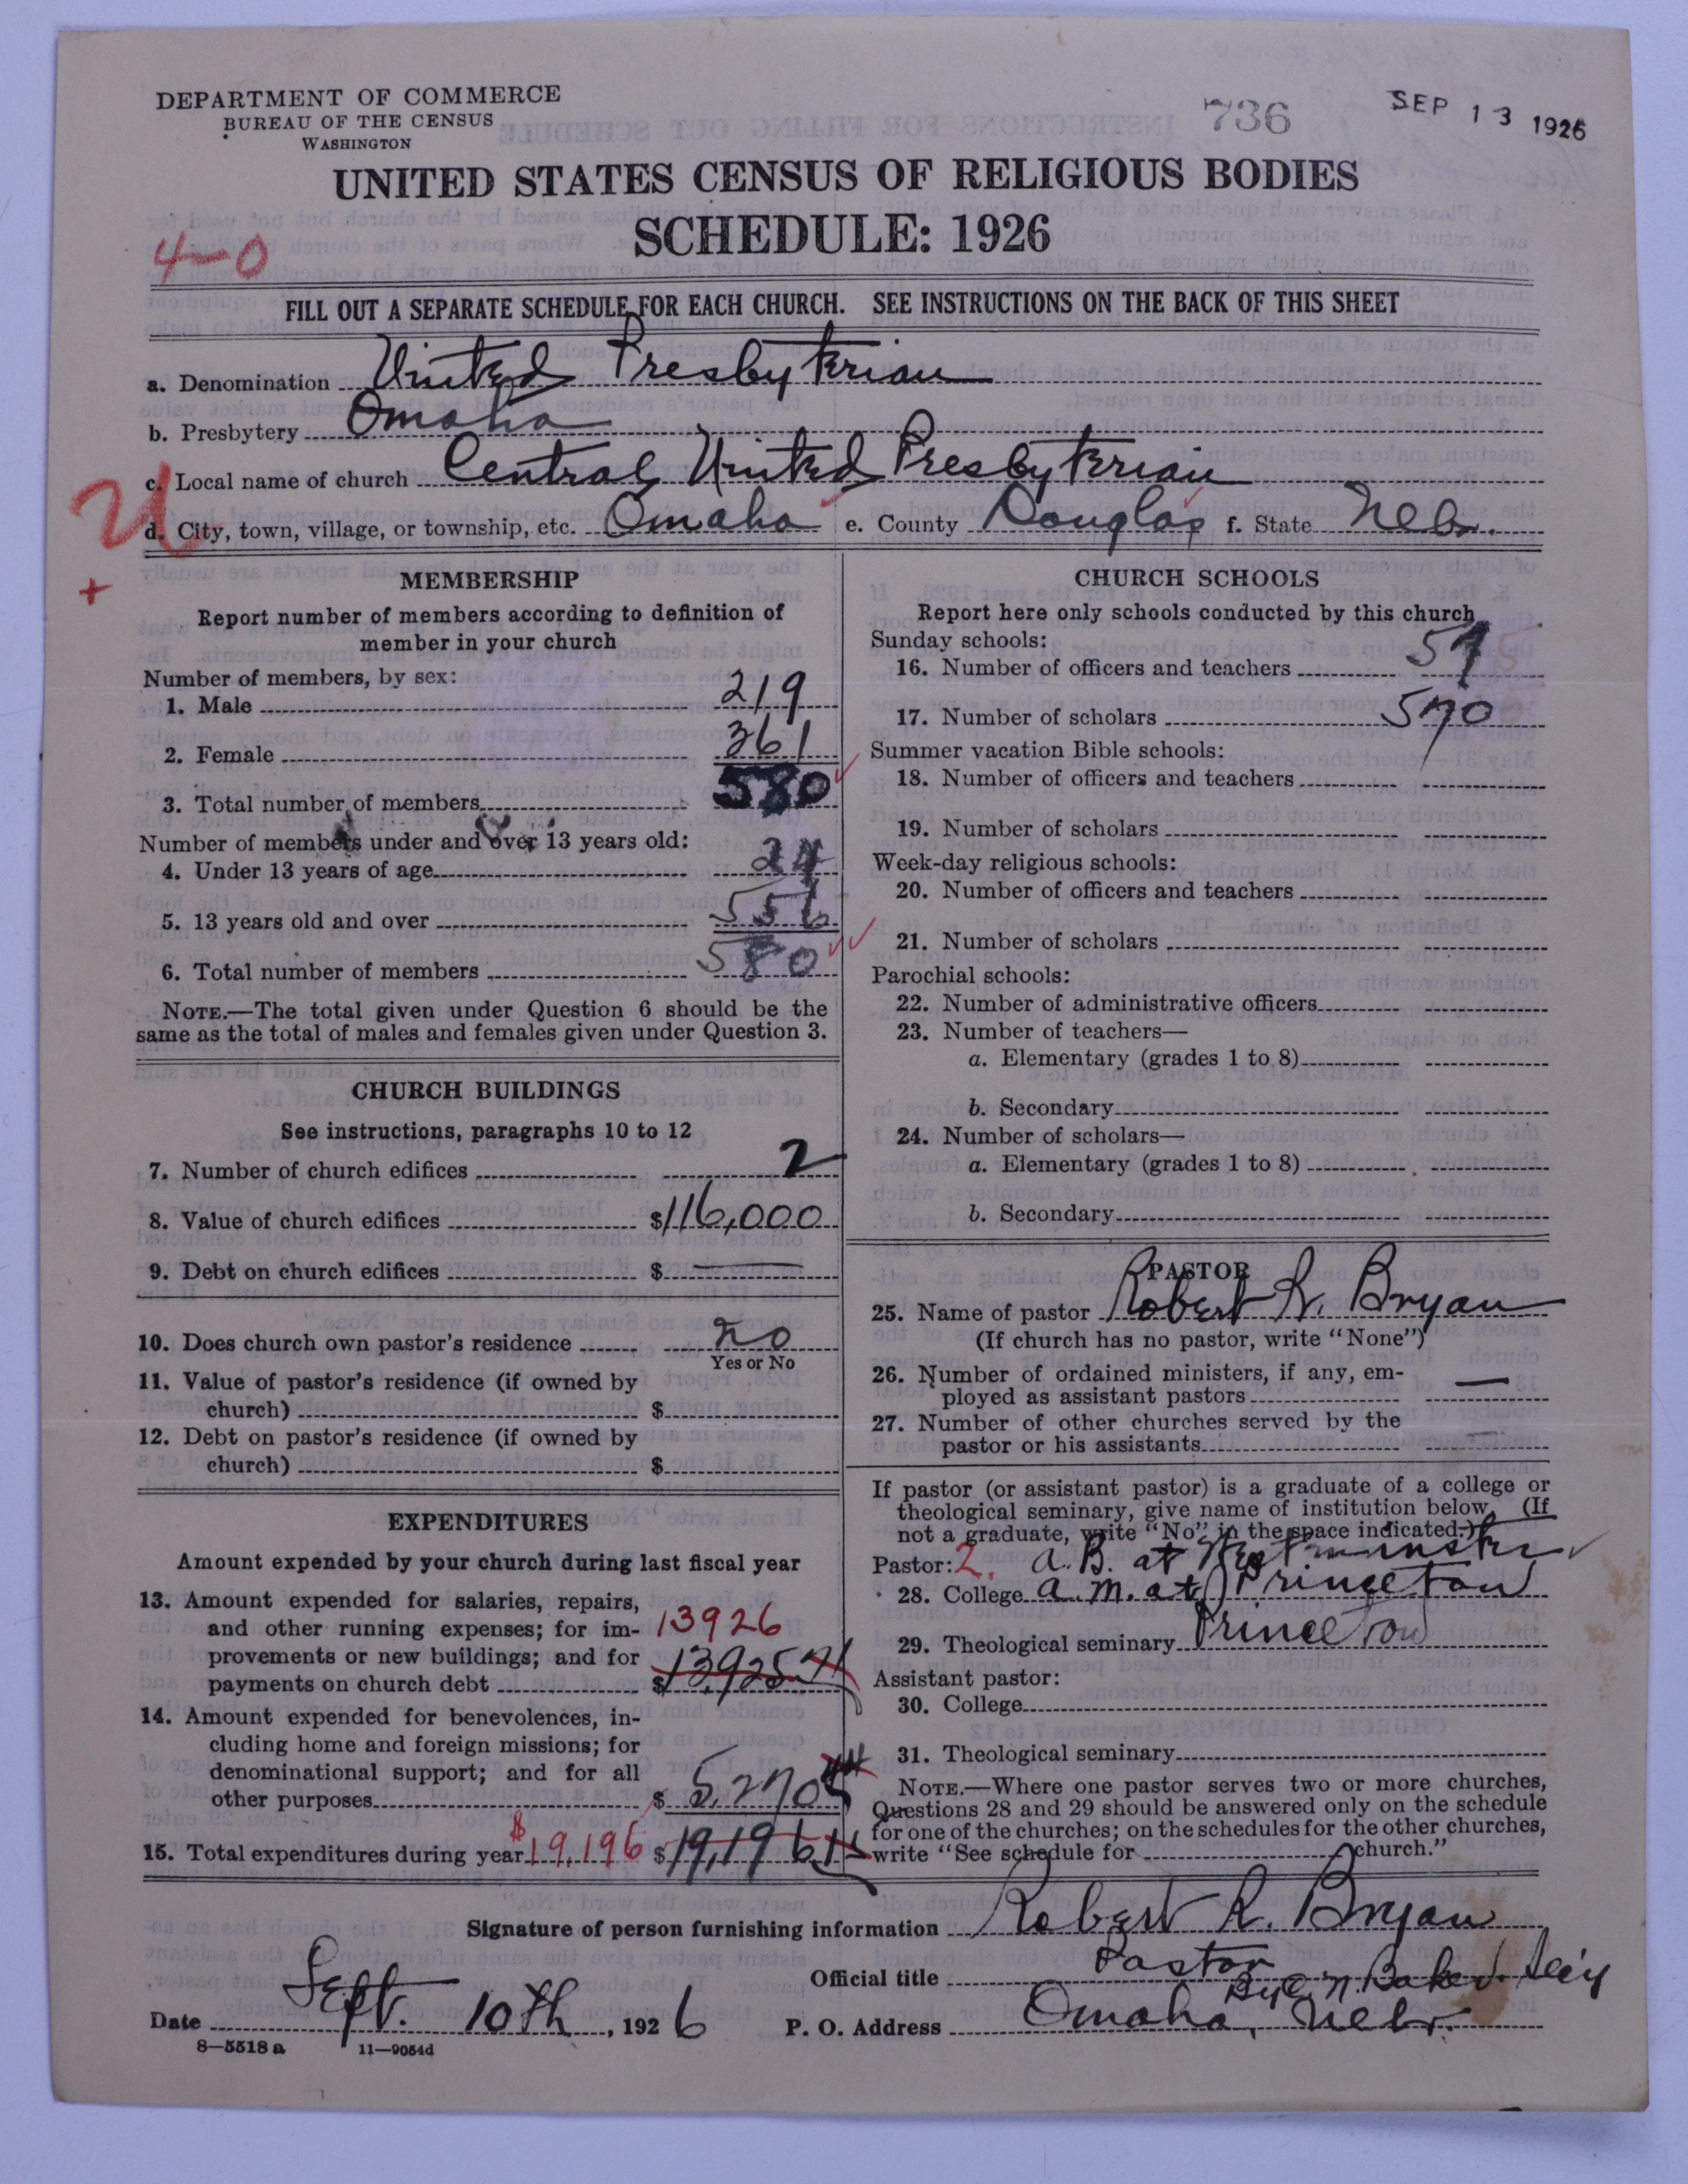 DEPARTMENT OF COMMERCE
BUREAU OF THE CENSUS
WASHINGTON
736
SEP 13 1926
UNITED STATES CENSUS OF RELIGIOUS BODIES
SCHEDULE: 1926
4-0
FILL OUT A SEPARATE SCHEDULE FOR EACH CHURCH. SEE INSTRUCTIONS ON THE BACK OF THIS SHEET
a. Denomination United Presbyterian
b. Presbytery Omaha
c. Local name of church Central United Presbyterian
d. City, town, village, or township, etc. Omaha e. County Douglas f. State Nebr.
MEMBERSHIP
Report number of members according to definition of
member in your church
Number of members, by sex:
1. Male 219
2. Female 361
3. Total number of members 580
Number of members under and over 13 years old:
4. Under 13 years of age 24
5. 13 years old and over 556
6. Total number of members 580
NOTE.—The total given under Question 6 should be the
same as the total of males and females given under Question 3.
CHURCH BUILDINGS
See instructions, paragraphs 10 to 12
7. Number of church edifices 2
8. Value of church edifices $116,000
9. Debt on church edifices $ —
10. Does church own pastor's residence no
Yes or No
11. Value of pastor's residence (if owned by
church) $
12. Debt on pastor's residence (if owned by
church) $
EXPENDITURES
Amount expended by your church during last fiscal year
13. Amount expended for salaries, repairs,
and other running expenses; for im-
13926
provements or new buildings; and for
payments on church debt $13,925 71
14. Amount expended for benevolences, in-
cluding home and foreign missions; for
denominational support; and for all
other purposes $ 5,270 44
15. Total expenditures during year $19,196 $19,196 15
CHURCH SCHOOLS
Report here only schools conducted by this church
Sunday schools:
16. Number of officers and teachers 57
17. Number of scholars 570
Summer vacation Bible schools:
18. Number of officers and teachers
19. Number of scholars
Week-day religious schools:
20. Number of officers and teachers
21. Number of scholars
Parochial schools:
22. Number of administrative officers
23. Number of teachers—
a. Elementary (grades 1 to 8)
b. Secondary
24. Number of scholars—
a. Elementary (grades 1 to 8)
b. Secondary
PASTOR
25. Name of pastor Robert R. Bryan
(If church has no pastor, write "None")
26. Number of ordained ministers, if any, em-
ployed as assistant pastors —
27. Number of other churches served by the
pastor or his assistants —
If pastor (or assistant pastor) is a graduate of a college or
theological seminary, give name of institution below. (If
not a graduate, write "No" in the space indicated.)
Pastor: 2. A.B. at Westminster
28. College A.M. at Princeton
29. Theological seminary Princeton
Assistant pastor:
30. College
31. Theological seminary
NOTE.—Where one pastor serves two or more churches,
Questions 28 and 29 should be answered only on the schedule
for one of the churches; on the schedules for the other churches,
write "See schedule for church."
Signature of person furnishing information Robert R. Bryan
Official title Pastor
By C. N. Baker, Sec'y
Date Sept. 10th, 1926 P. O. Address Omaha, Nebr.
8—5518 a 11—9054d